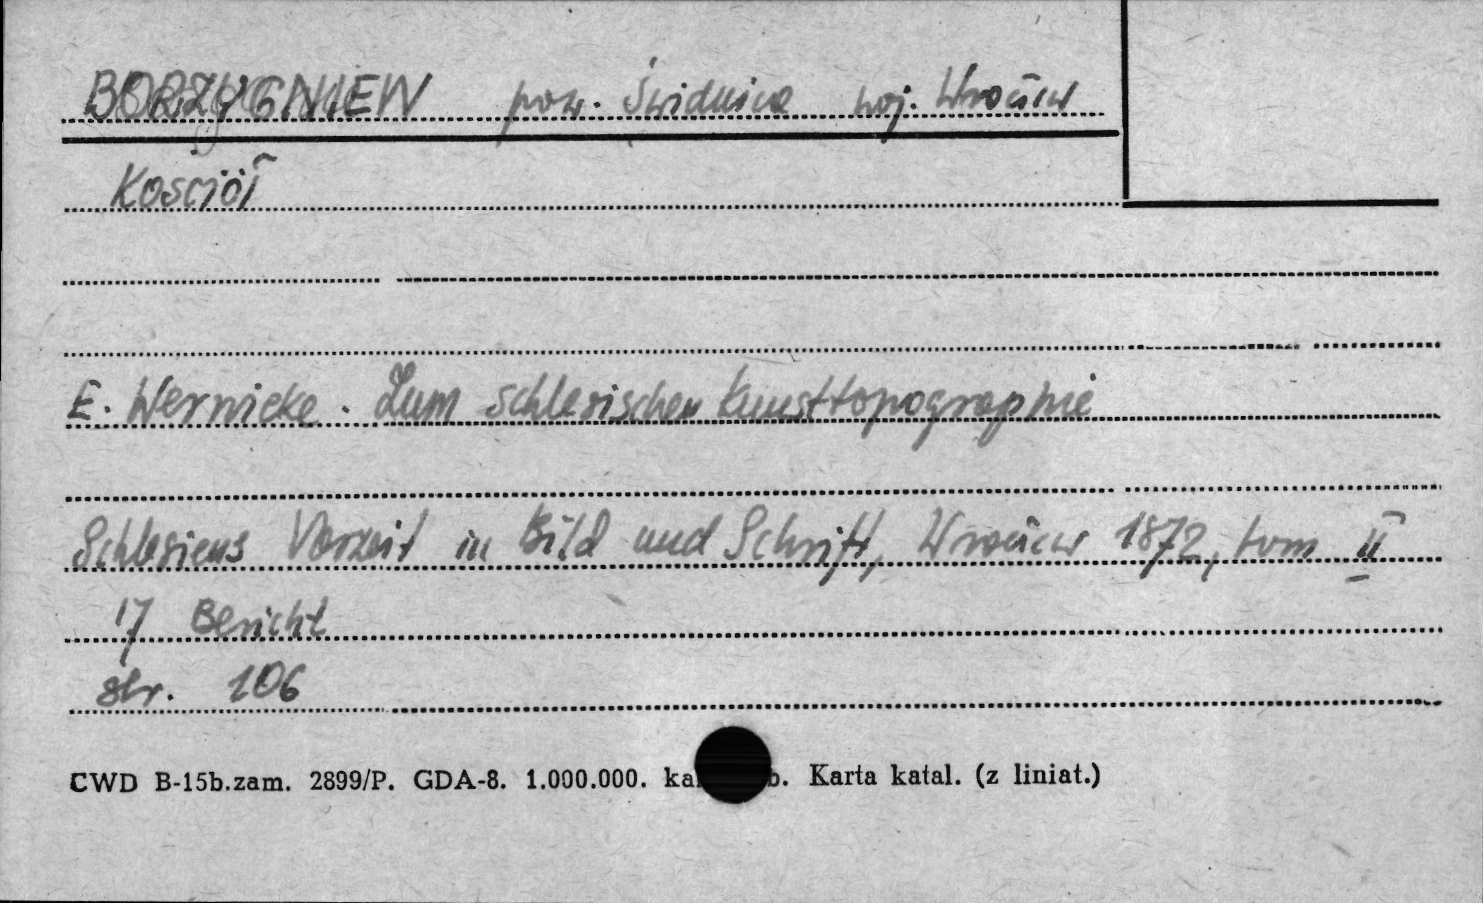 BORZYGNIEW pow. Świdnica woj. Wrocław
Kościół
E. Wernicke. Zum schlesischen Kunsttopographie
Schlesiens Vorzeit in Bild und Schrift, Wrocław 1872, tom II
17 Bericht
str. 106
CWD B-15b.zam. 2899/P. GDA-8. 1.000.000. Karta katal. (z liniat.)